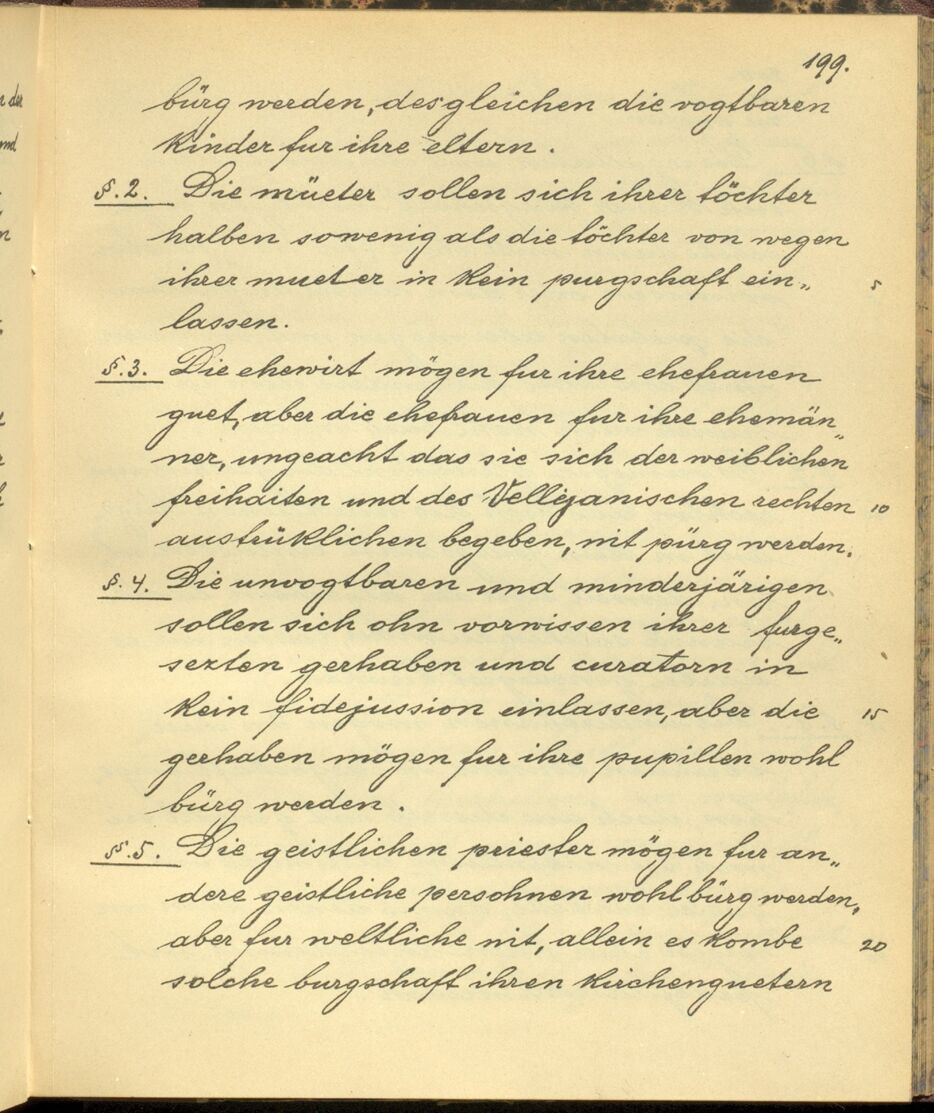 199.
bürg werden, desgleichen die vogtbaren
kinder fur ihre eltern.
§.2. Die müeter sollen sich ihrer töchter
halben sowenig als die töchter von wegen
ihrer mueter in kein purgschaft ein„ 5
lassen.
§.3. Die ehewirt mögen fur ihre ehefrauen
guet, aber die ehefrauen fur ihre ehemän„
ner, ungeacht das sie sich der weiblichen
freihaiten und des Vellejanischen rechten 10
austrüklichen begeben, nit pürg werden.
§.4. Die unvogtbaren und minderjärigen
sollen sich ohn vorwissen ihrer furge„
sezten gerhaben und curatorn in
kein fidejussion einlassen, aber die 15
gerhaben mögen fur ihre pupillen wohl
bürg werden.
§.5. Die geistlichen priester mögen fur an„
dere geistliche persohnen wohl bürg werden,
aber fur weltliche nit, allein es kombe 20
solche burgschaft ihren kirchenguetern